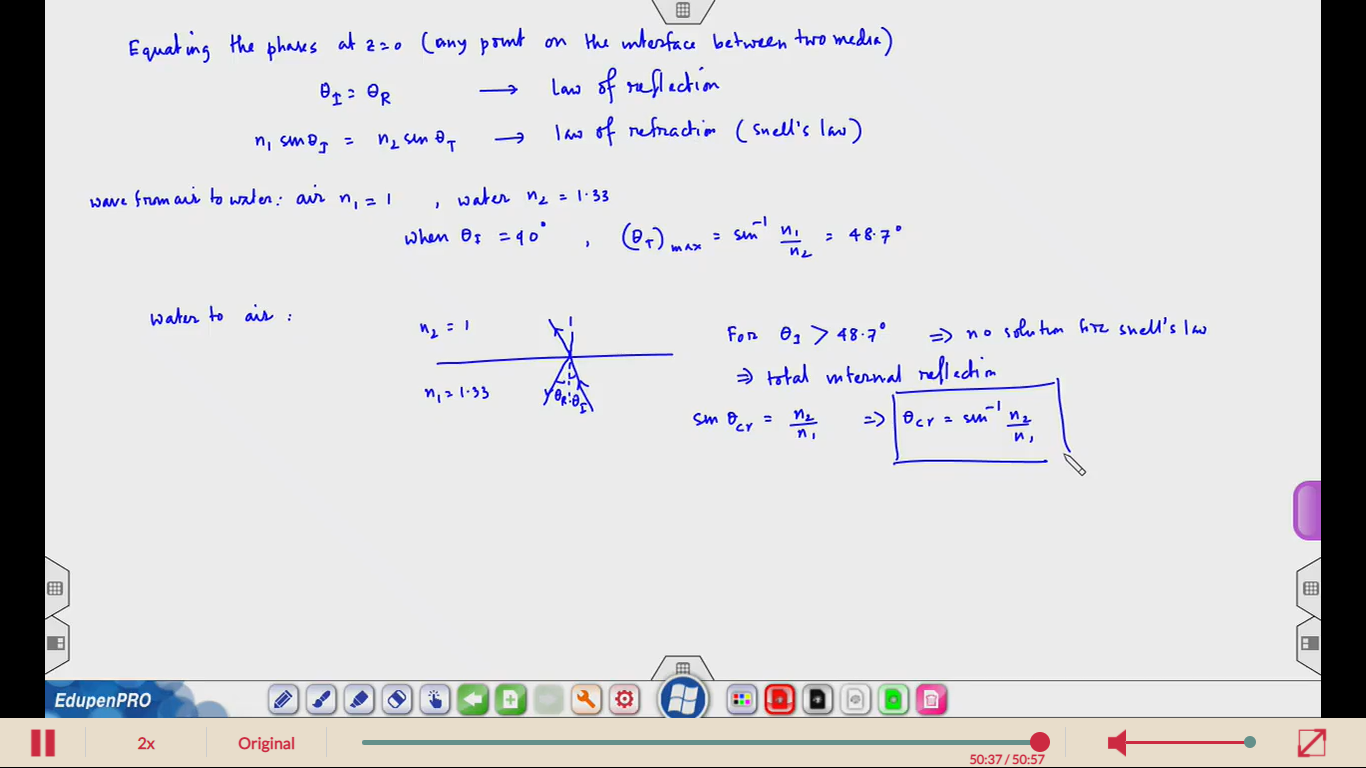 Equating the phases at z=0 (any point on the interface between two media)
θ_I = θ_R → law of reflection
n₁ sinθ_I = n₂ sinθ_T → law of refraction (snell's law)
wave from air to water: air n₁ = 1 , water n₂ = 1.33
when θ_I = 90° , (θ_T)_max = sin⁻¹ n₁/n₂ = 48.7°
water to air :
n₂ = 1
n₁ = 1.33
θ_R θ_I
For θ_I > 48.7° ⇒ no solution for snell's law
⇒ total internal reflection
sin θ_cr = n₂/n₁ ⇒ θ_cr = sin⁻¹ n₂/n₁
EdupenPRO
2x
Original
50:37 / 50:57